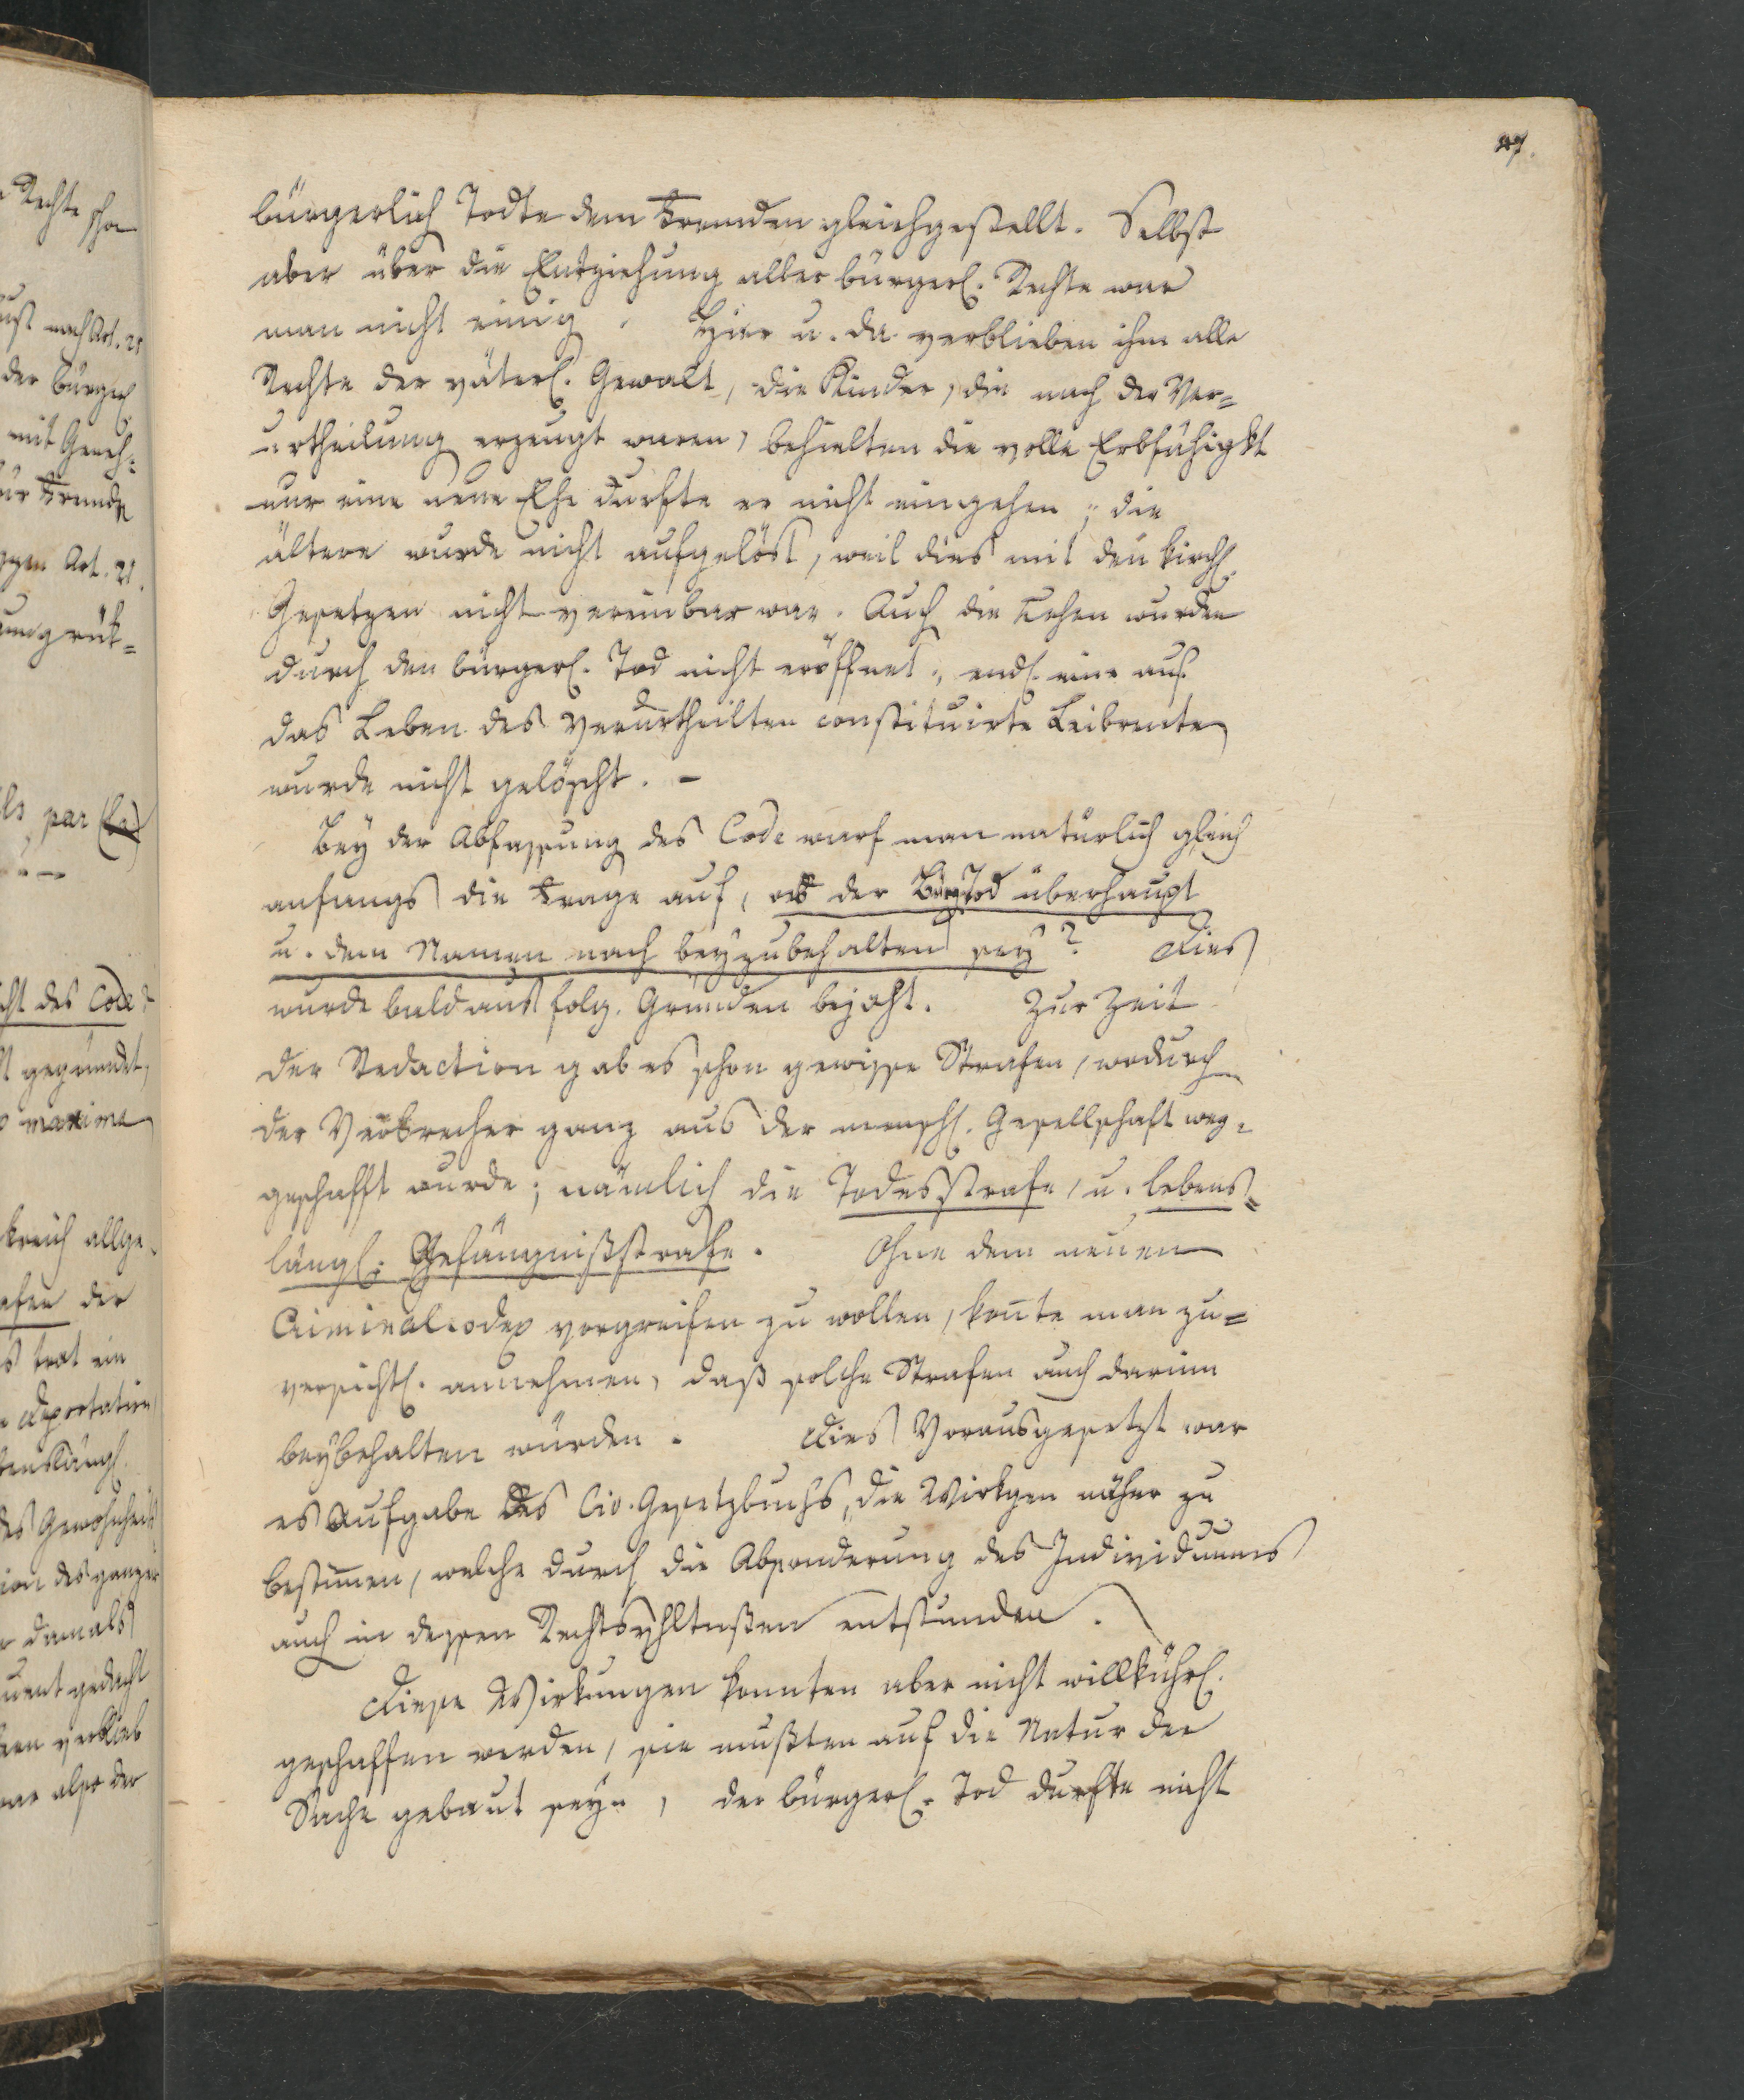 47.
bürgerlich Todte dem Fremden gleichgestellt. Selbst
aber über die Entziehung aller bürgerl. Rechte war
man nicht einig. Hier u. da verblieben ihm alle
Rechte der väterl. Gewalt, die Kinder, die nach der Ver=
urtheilung erzeugt waren, behielten die volle Erbfähigkt
nur eine neue Ehe durfte er nicht eingehen; die
ältere wurde nicht aufgelöst, weil dies mit den kirchl.
Gesetzen nicht vereinbar war. Auch die Lehen wurden
durch den bürgerl. Tod nicht eröffnet, endl. eine auf
das Leben des Verurtheilten constituirte Leibrente
wurde nicht gelöscht. -
Bey der Abfassung des Code warf man natürlich gleich
anfangs die Frage auf, ob der BürgTod überhaupt
u. dem Namen nach beyzubehalten sey? Dies
wurde bald aus folg. Gründen bejaht. Zur Zeit
der Redaction gab es schon gewisse Strafen, wodurch
der Verbrecher ganz aus der menschl. Gesellschaft weg=
geschafft wurde; nämlich die Todesstrafe, u. lebens=
längl. Gefängnißstrafe. Ohne dem neuen
Criminalcodex vorgreifen zu wollen, konnte man zu=
versichtl. annehmen, daß solche Strafen auch darinn
beybehalten würden. Dies Vorausgesetzt war
es Aufgabe des Civ. Gesetzbuchs, die Wirkgen näher zu
bestimmen, welche durch die Absonderung des Individuums
auch in dessen Rechtsvhltnßen entstunden.
Diese Wirkungen konnten aber nicht willkührl.
geschaffen werden, sie mußten auf die Natur der
Sache gebaut seyn, der bürgerl. Tod durfte nicht